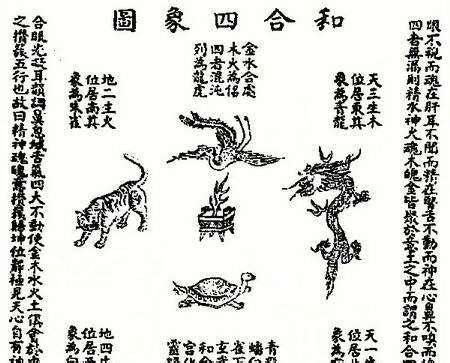 和合四象圖
眼不視而魂在肝耳不聞而精在腎舌不動而神在心鼻不嗅而
四者無漏則精水神火魂木魄金皆聚於意土之中而謂之和合
天三生木
位居東其
象為青龍
金水合處
木火為侶
四者混沌
列為龍虎
地二生火
位居南其
象為朱雀
天一
位居
象為
青龍
蟠
雀下
玄武
和合
宮化
靈
地四
位居
象為
合眼光凝耳韻調鼻息緘舌氣四大不動使金木水火土俱會於
之攢簇五行也故曰精神魂魄意攢簇歸坤位靜極見天心自有